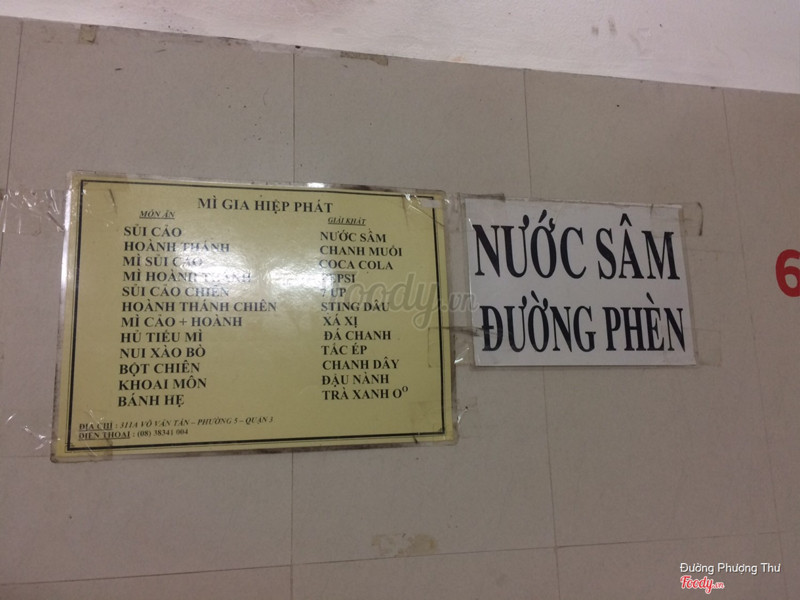 MÌ GIA HIỆP PHÁT
MÓN ĂN
SỦI CẢO
HOÀNH THÁNH
MÌ SỦI CẢO
MÌ HOÀNH THÁNH
SỦI CẢO CHIÊN
HOÀNH THÁNH CHIÊN
MÌ CẢO + HOÀNH
HỦ TIẾU MÌ
NUI XÀO BÒ
BỘT CHIÊN
KHOAI MÔN
BÁNH HẸ
GIẢI KHÁT
NƯỚC SÂM
CHANH MUỐI
COCA COLA
PEPSI
7 UP
STING DÂU
XÁ XỊ
ĐÁ CHANH
TẮC ÉP
CHANH DÂY
ĐẬU NÀNH
TRÀ XANH O°
ĐỊA CHỈ : 311A VÕ VĂN TẦN – PHƯỜNG 5 – QUẬN 3
ĐIỆN THOẠI : (08) 38341 004
NƯỚC SÂM
ĐƯỜNG PHÈN
6
Foody.vn
Đường Phượng Thư
Foody.vn